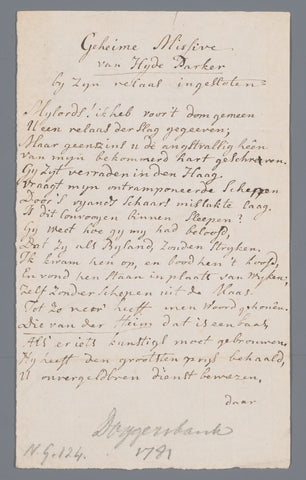 Geheime Missive
van Hyde Parker
by zyn relaas ingeslooten
Mylords! ik heb voor't domgemeen
U een relaas der Slag gegeeven;
Maar geenszins u de angstvallig heên
van myn bekommerd hart geschreven,
Gy zyt verraden in den Haag.
Vraagt myn ontramponeerde Schepen
Door's vyands Schaars mislukte laag.
Is dit convooijen binnen Sleepen?
Gy weet hoe gy my had beloofd,
Dat zy als Byland, zouden Stryken,
Ik kwam hen op, en bood hen 't hoofd,
En vond hen Staan in plaats van Wyken,
Zelf zonder schepen uit de Maas.
Tot zo veer heeft men woord gehouen.
Die van der Heim dat is een baas,
Als er iets kunstigs moet gebrouwen,
Hy heeft den grootsten prys behaald,
U onvergeldbren dienst bewezen,
daar
Doggersbank
1781
N.G. 124.